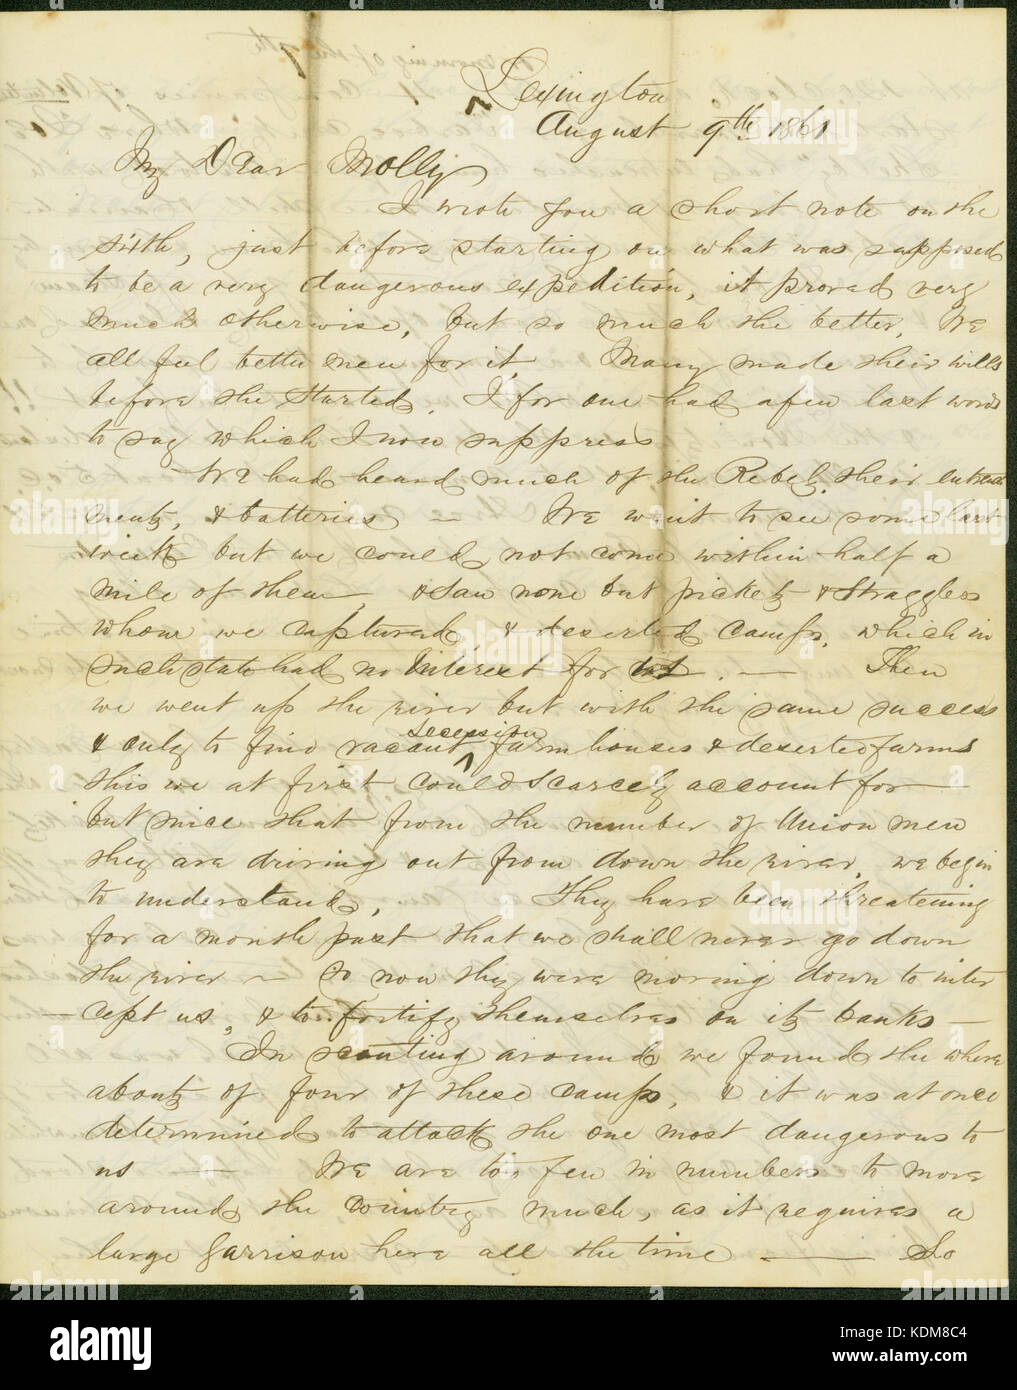 Lexington
August 9th 1861
My Dear Molly
I wrote you a short note on the
sixth, just before starting on what was supposed
to be a very dangerous expedition, it proved very
much otherwise, but so much the better. We
all feel better men for it. Many made their wills
before the started. I for one had a few last words
to say which I now suppress
We had heard much of the Rebels, their entrench
ments, & batteries — We went to see some last
week but we could not come within half a
mile of them, & saw none but pickets & stragglers
whom we captured, & deserted camps, which in
such state had no interest for us. — Then
we went up the river but with the same success
& only to find vacant secession farm houses & deserted farms
this we at first could scarcely account for —
but since that from the number of Union men
they are driving out from down the river, we begin
to understand. They have been threatening
for a month past that we shall never go down
the river — So now they were moving down to inter
—cept us, & to fortify themselves on its banks —
In scouting around we found the where
abouts of four of these camps, & it was at once
determined to attack the one most dangerous to
us — We are too few in numbers to move
around the country much, as it requires a
large garrison here all the time — So
alamy
Image ID: KDM8C4
www.alamy.com